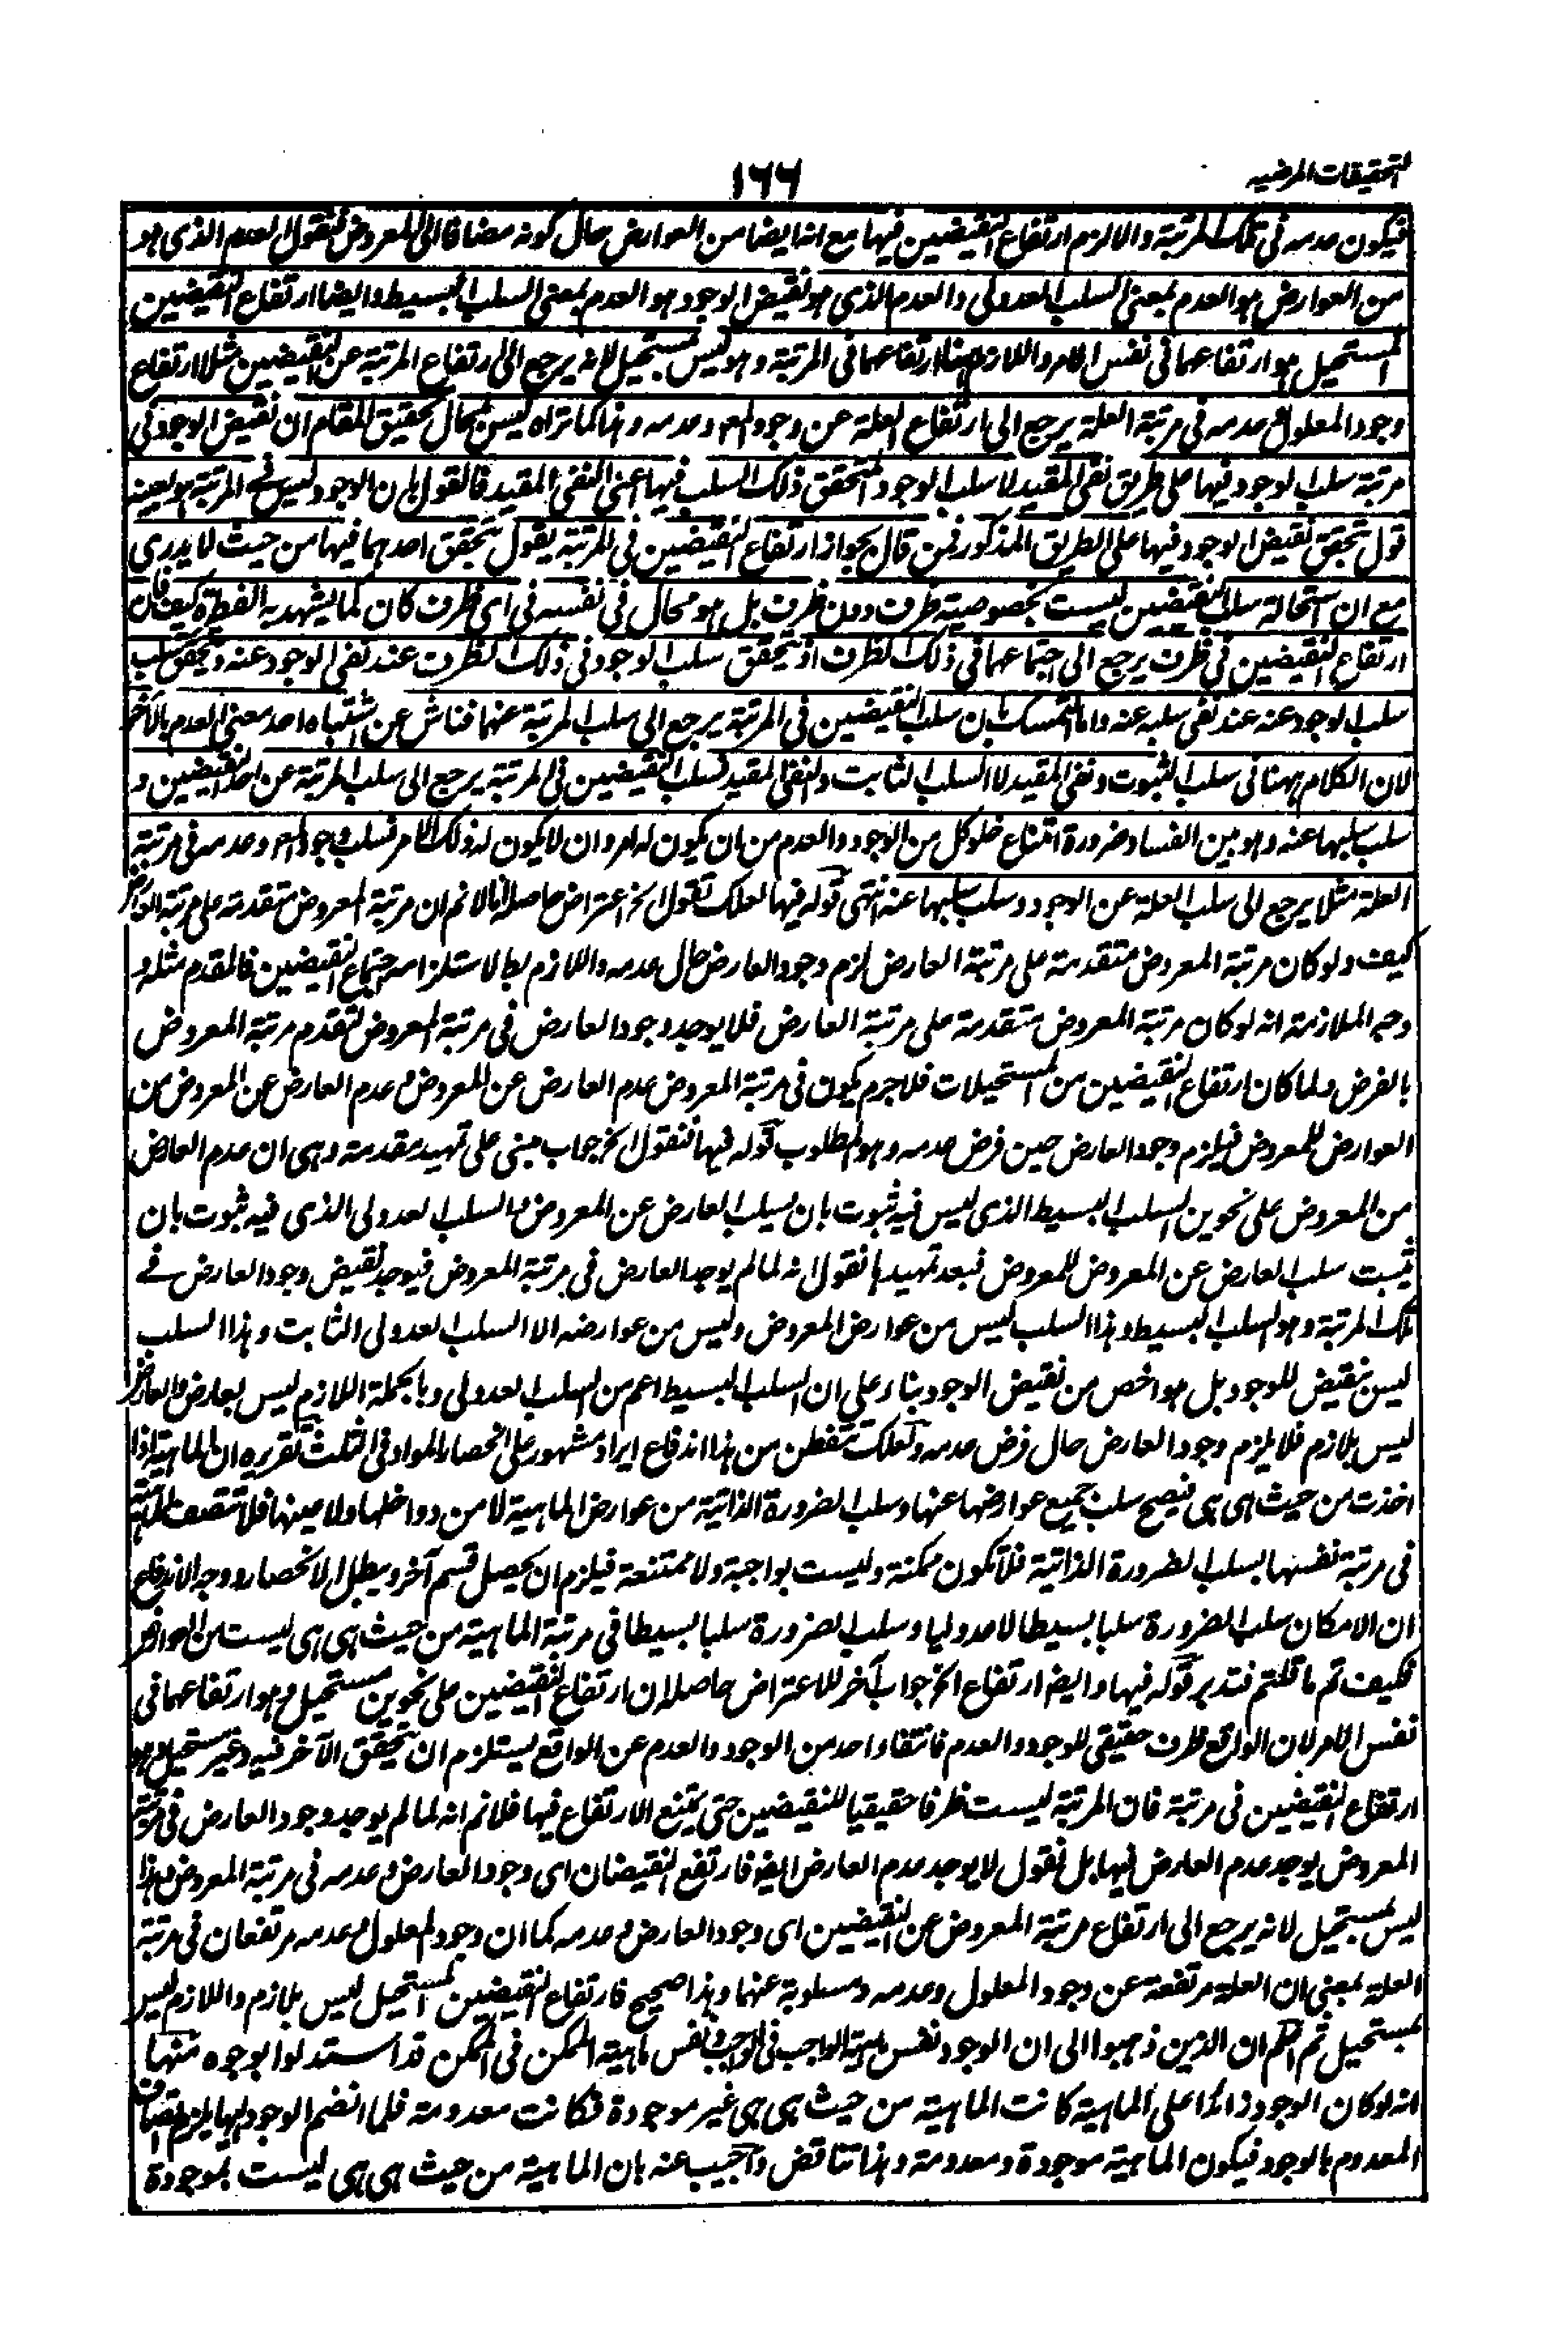 التحقيقات المرضيه
١٦٦
فيكون عدمه فى تلك المرتبة والا لزم ارتفاع النقيضين فيها مع انه ايضا من العوارض حال كونه مضافا الى المعروض فنقول العدم الذى هو
من العوارض هو العدم بمعنى السلب العدولى والعدم الذى هو نقيض الوجود هو العدم بمعنى السلب البسيط وايضا ارتفاع النقيضين
المستحيل هو ارتفاعهما فى نفس الامر واللازم ههنا ارتفاعهما فى المرتبة وهو ليس بمستحيل لانه يرجع الى ارتفاع المرتبة عن النقيضين مثلا ارتفاع
وجود المعلول وعدمه فى مرتبة العلة يرجع الى ارتفاع العلة عن وجود المع وعدمه وهذا كما تراه ليس بمحال تحقيق المقام ان نقيض الوجود فى
مرتبة سلب الوجود فيها على طريق نفى المقيد لا سلب الوجود المتحقق ذلك السلب فيها اعنى النفى المقيد فالقول بان الوجود ليس فى المرتبة هو بعينه
قول تحقق نقيض الوجود فيها على الطريق المذكور فمن قال بجواز ارتفاع النقيضين فى المرتبة يقول بتحقق احدهما فيها من حيث لا يدرى
مع ان استحالة سلب النقيضين ليست بخصوصية ظرف دون ظرف بل هو محال فى نفسه فى اى ظرف كان كما يشهد به الفطرة كيف فان
ارتفاع النقيضين فى ظرف يرجع الى اجتماعهما فى ذلك الظرف اذ يتحقق سلب الوجود فى ذلك الظرف عند نفى الوجود عنه ويتحقق سلب
سلب الوجود عنه عند نفى سلبه عنه واما التمسك بان سلب النقيضين فى المرتبة يرجع الى سلب المرتبة عنهما فناش عن اشتباه احد معنى العدم بالآخر
لان الكلام ههنا فى سلب الثبوت ونفى المقيد لا السلب الثابت والنفى المقيد فسلب النقيضين فى المرتبة يرجع الى سلب المرتبة عن احد النقيضين و
سلب سلبها عنه وهو بين الفساد ضرورة امتناع خلو كل من الوجود والعدم من ان يكون له امر وان لا يكون له ذلك الامر فسلب وجود المع وعدمه فى مرتبة
العلة مثلا يرجع الى سلب العلة عن الوجود وسلب سلبها عنه انتهى قوله فيها لعلك تقول الخ اعتراض حاصله انا لا نم ان مرتبة المعروض متقدمة على مرتبة العوارض
كيف ولو كان مرتبة المعروض متقدمة على مرتبة العارض لزم وجود العارض حال عدمه واللازم بط لاستلزامه اجتماع النقيضين فالمقدم مثله و
وجه الملازمة انه لو كان مرتبة المعروض متقدمة على مرتبة العارض فلا يوجد وجود العارض فى مرتبة المعروض لتقدم مرتبة المعروض
بالفرض ولما كان ارتفاع النقيضين من المستحيلات فلاجرم يكون فى مرتبة المعروض عدم العارض عن المعروض وعدم العارض عن المعروض من
العوارض للمعروض فيلزم وجود العارض حين فرض عدمه وهو المطلوب قوله فيها فنقول الخ جواب مبنى على تمهيد مقدمة وهى ان عدم العارض
من المعروض على نحوين السلب البسيط الذى ليس فيه ثبوت بان يسلب العارض عن المعروض والسلب العدولى الذى فيه ثبوت بان
يثبت سلب العارض عن المعروض للمعروض فبعد تمهيدها نقول انه لما لم يوجد العارض فى مرتبة المعروض فيوجد نقيض وجود العارض فے
تلك المرتبة وهو السلب البسيط وهذا السلب ليس من عوارض المعروض وليس من عوارضه الا السلب العدولى الثابت وهذا السلب
ليس بنقيض للوجود بل هو اخص من نقيض الوجود بناء على ان السلب البسيط اعم من السلب العدولى وبالجملة اللازم ليس بعارض والعارض
ليس بلازم فلا يلزم وجود العارض حال فرض عدمه ولعلك تتفطن من هذا اندفاع ايراد مشهور على انحصار المواد فى الثلث تقريره ان الماهية اذا
اخذت من حيث هى هى فيصح سلب جميع عوارضها عنها وسلب الضرورة الذاتية من عوارض الماهية لا من دواخلها ولا عينها فلا تتصف الماهية
فى مرتبة نفسها بسلب الضرورة الذاتية فلا تكون ممكنة وليست بواجبة ولا ممتنعة فيلزم ان يحصل قسم آخر ويبطل الانحصار ووجه الاندفاع
ان الامكان سلب الضرورة سلبا بسيطا لا عدوليا وسلب الضرورة سلبا بسيطا فى مرتبة الماهية من حيث هى هى ليست من العوارض
فكيف تم ما قلتم فتدبر قوله فيها وايضا ارتفاع الخ جواب آخر للاعتراض حاصله ان ارتفاع النقيضين على نحوين مستحيل وهو ارتفاعهما فى
نفس الامر لان الواقع ظرف حقيقى للوجود والعدم فانتفاء واحد من الوجود والعدم عن الواقع يستلزم ان يتحقق الآخر فيه وغير مستحيل وهو
ارتفاع النقيضين فى مرتبة فان المرتبة ليست ظرفا حقيقيا للنقيضين حتى يمتنع الارتفاع فيها فلا نم انه لما لم يوجد وجود العارض فى مرتبة
المعروض يوجد عدم العارض فيها بل نقول لا يوجد عدم العارض ايضا فارتفع النقيضان اى وجود العارض وعدمه فى مرتبة المعروض وهذا
ليس بمستحيل لانه يرجع الى ارتفاع مرتبة المعروض عن النقيضين اى وجود العارض وعدمه كما ان وجود المعلول وعدمه مرتفعان فى مرتبة
العلة بمعنى ان العلة مرتفعة عن وجود المعلول وعدمه ومسلوبة عنهما وهذا صحيح فارتفاع النقيضين المستحيل ليس بلازم واللازم ليس
بمستحيل ثم اعلم ان الذين ذهبوا الى ان الوجود نفس ماهية الواجب فى الواجب ونفس ماهية الممكن فى الممكن قد استدلوا بوجوه منها
انه لو كان الوجود زائدا على الماهية كانت الماهية من حيث هى هى غير موجودة فكانت معدومة فلما انضم الوجود اليها يلزم اتصاف
المعدوم بالوجود فيكون الماهية موجودة ومعدومة وهذا تناقض واجيب عنه بان الماهية من حيث هى هى ليست بموجودة